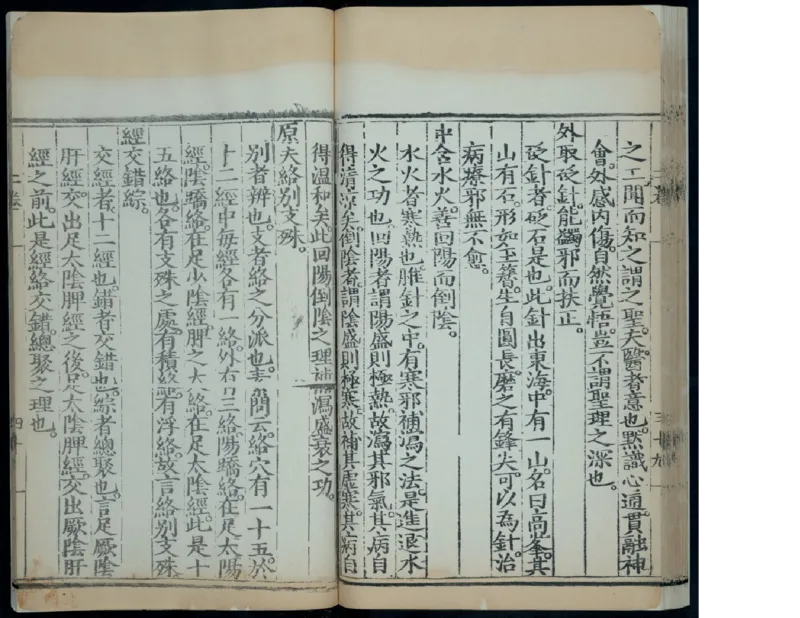 之工聞而知之謂之聖夫醫者意也默識心通貫融神
會外感內傷自然覺悟豈不謂聖理之深也
外取砭針能蠲邪而扶正
砭針者砭石是也此針出東海中有一山名曰高峯其
山有石形如玉簪生自圓長磨之有鋒尖可以為針治
病療邪無不愈
中含水火善回陽而倒陰
水火者寒熱也惟針之中有寒邪補瀉之法是進退水
火之功也回陽者謂陽盛則極熱故瀉其邪氣其病自
得清涼矣倒陰者謂陰盛則極寒故補其虛寒其病自
得溫和矣此回陽倒陰之理補瀉盛衰之功
原夫絡別支殊
別者辨也支者絡之分派也素問云絡穴有一十五於
十二經中每經各有一絡外有三絡陽蹻絡在足太陽
經陰蹻絡在足少陰經脾之大絡在足太陰經此是十
五絡也各有支殊之處有積絡有浮絡故言絡別支殊
經交錯綜
交經者十二經也錯者交錯也綜者總聚也言足厥陰
肝經交出足太陰脾經之後足太陰脾經交出厥陰肝
經之前此是經絡交錯總聚之理也
二卷